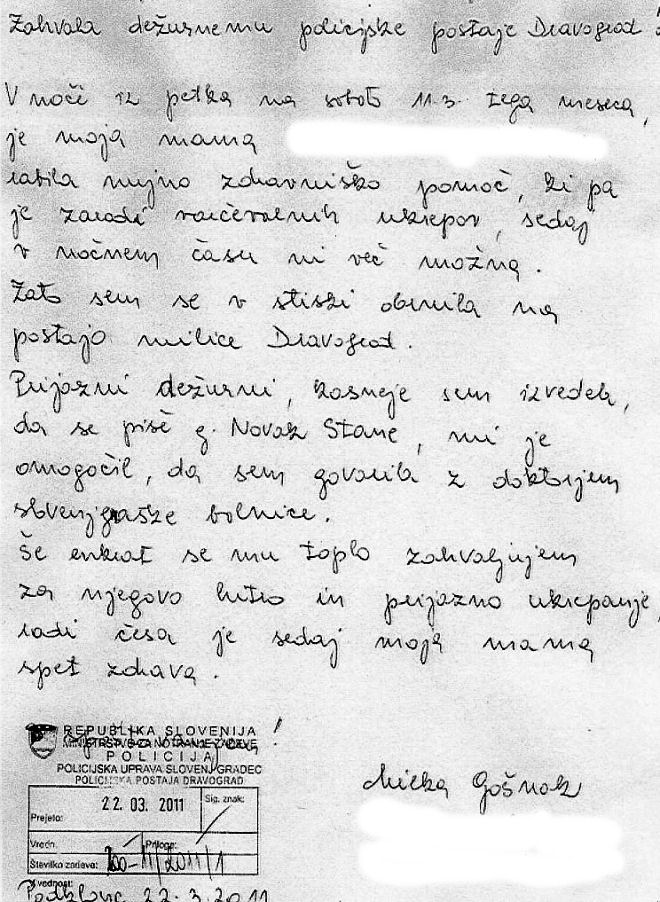 Zahvala dežurnemu policijske postaje Dravograd!
V noči iz petka na soboto 11.3. tega meseca,
je moja mama
rabila nujno zdravniško pomoč, ki pa
je zaradi varčevalnih ukrepov, sedaj
v nočnem času ni več možna.
Zato sem se v stiski obrnila na
postajo milice Dravograd.
Prijazni dežurni, kasneje sem izvedela,
da se piše g. Novak Stane, mi je
omogočil, da sem govorila z doktorjem
slovenjgraške bolnice.
Še enkrat se mu toplo zahvaljujem
za njegovo hitro in prijazno ukrepanje,
radi česa je sedaj moja mama
spet zdrava.
REPUBLIKA SLOVENIJA
MINISTRSTVO ZA NOTRANJE ZADEVE
POLICIJA
POLICIJSKA UPRAVA SLOVENJ GRADEC
POLICIJSKA POSTAJA DRAVOGRAD
Prejeto: 22. 03. 2011 Sig. znak:
Vredn. Priloge:
Številka zadeve:
Milka Gošnak
22.3.2011